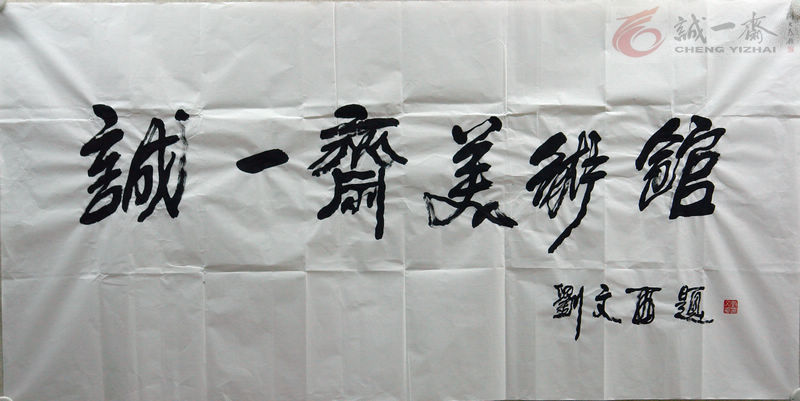 誠一齋
CHENG YIZHAI
誠一齋美術館
劉文西題